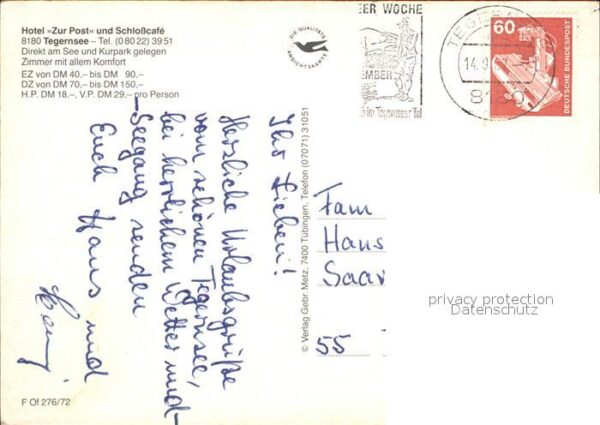 Hotel »Zur Post« und Schloßcafé
8180 Tegernsee – Tel. (0 80 22) 39 51
Direkt am See und Kurpark gelegen
Zimmer mit allem Komfort
EZ von DM 40,– bis DM 90,–
DZ von DM 70,– bis DM 150,–
H.P. DM 18,–, V.P. DM 29,– pro Person
DIE QUALITÄTS
ANSICHTSKARTE
ER WOCHE
EMBER
im Tegernseer Tal
TEGERN
14.9
818
60
DEUTSCHE BUNDESPOST
Ihr Lieben!
Herzliche Urlaubsgrüße
vom schönen Tegernsee,
bei herrlichem Wetter und
Seegang senden
Euch Hans und
© Verlag Gebr. Metz, 7400 Tübingen, Telefon (07071) 31051
Fam
Hans
Saar
55
privacy protection
Datenschutz
F Of 276/72